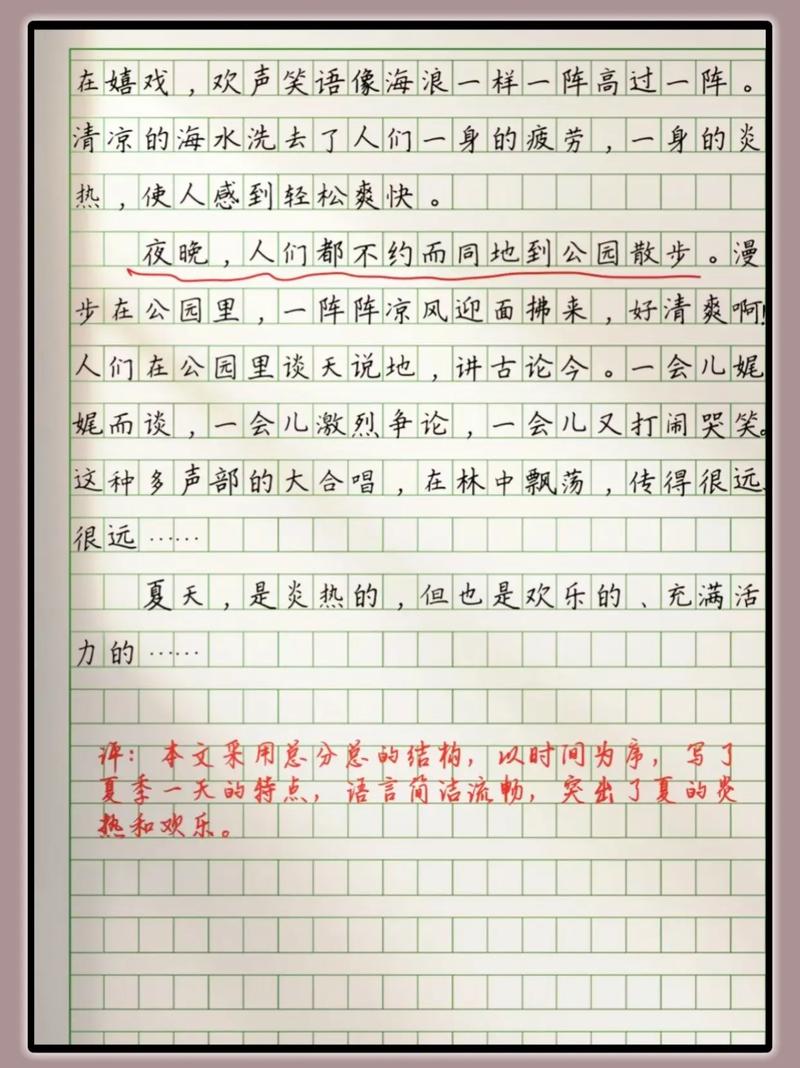 在嬉戏，欢声笑语像海浪一样一阵高过一阵。
清凉的海水洗去了人们一身的疲劳，一身的炎
热，使人感到轻松爽快。
夜晚，人们都不约而同地到公园散步。漫
步在公园里，一阵阵凉风迎面拂来，好清爽啊！
人们在公园里谈天说地，讲古论今。一会儿娓
娓而谈，一会儿激烈争论，一会儿又打闹哭笑。
这种多声部的大合唱，在林中飘荡，传得很远、
很远……
夏天，是炎热的，但也是欢乐的、充满活
力的……
评：本文采用总分总的结构，以时间为序，写了
夏季一天的特点，语言简洁流畅，突出了夏的炎
热和欢乐。